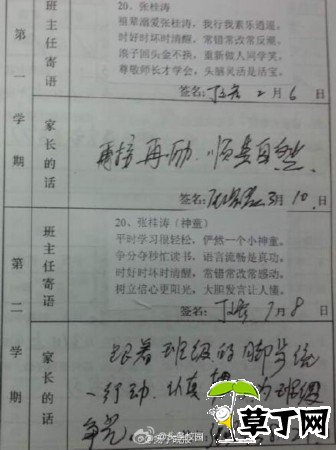 第一学期
班主任寄语
20、张桂涛
祖辈溺爱张桂涛，我行我素乐逍遥。
时好时坏时清醒，常错常改常反潮。
浪子回头金不换，重新做人同学笑。
尊敬师长才学会，头脑灵活是活宝。
签名： 2月6日
家长的话
再接再励 顺其自然
签名： 3月10日
第二学期
班主任寄语
20、张桂涛（神童）
平时学习很轻松，俨然一个小神童。
争分夺秒忙读书，语言流畅是真功。
时好时坏时清醒，常错常改常感动。
树立信心更阳光，大胆发言让人懂。
签名： 7月8日
家长的话
跟着班级的脚步统
一行动，认真 为班级
争光
草丁网